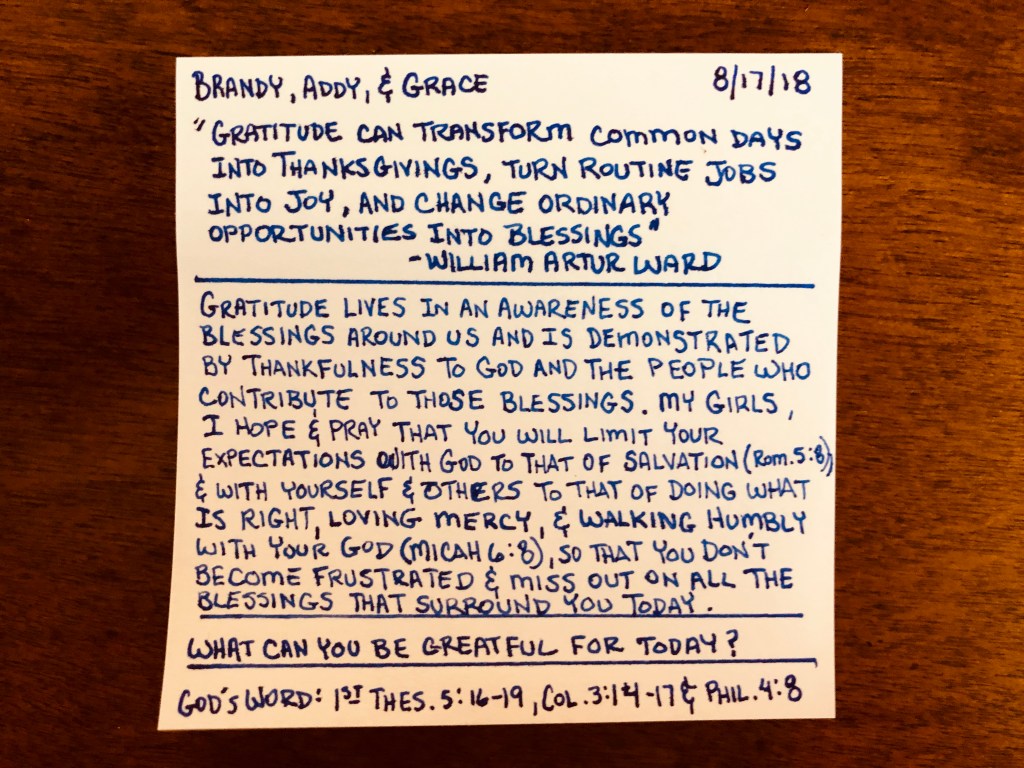 BRANDY, ADDY, & GRACE 8/17/18
"GRATITUDE CAN TRANSFORM COMMON DAYS
INTO THANKSGIVINGS, TURN ROUTINE JOBS
INTO JOY, AND CHANGE ORDINARY
OPPORTUNITIES INTO BLESSINGS"
-WILLIAM ARTUR WARD
GRATITUDE LIVES IN AN AWARENESS OF THE
BLESSINGS AROUND US AND IS DEMONSTRATED
BY THANKFULNESS TO GOD AND THE PEOPLE WHO
CONTRIBUTE TO THOSE BLESSINGS. MY GIRLS,
I HOPE & PRAY THAT YOU WILL LIMIT YOUR
EXPECTATIONS WITH GOD TO THAT OF SALVATION (ROM. 5:8),
& WITH YOURSELF & OTHERS TO THAT OF DOING WHAT
IS RIGHT, LOVING MERCY, & WALKING HUMBLY
WITH YOUR GOD (MICAH 6:8), SO THAT YOU DON'T
BECOME FRUSTRATED & MISS OUT ON ALL THE
BLESSINGS THAT SURROUND YOU TODAY.
WHAT CAN YOU BE GREATFUL FOR TODAY?
GOD'S WORD: 1ST THES. 5:16-19, COL. 3:14-17 & PHIL. 4:8